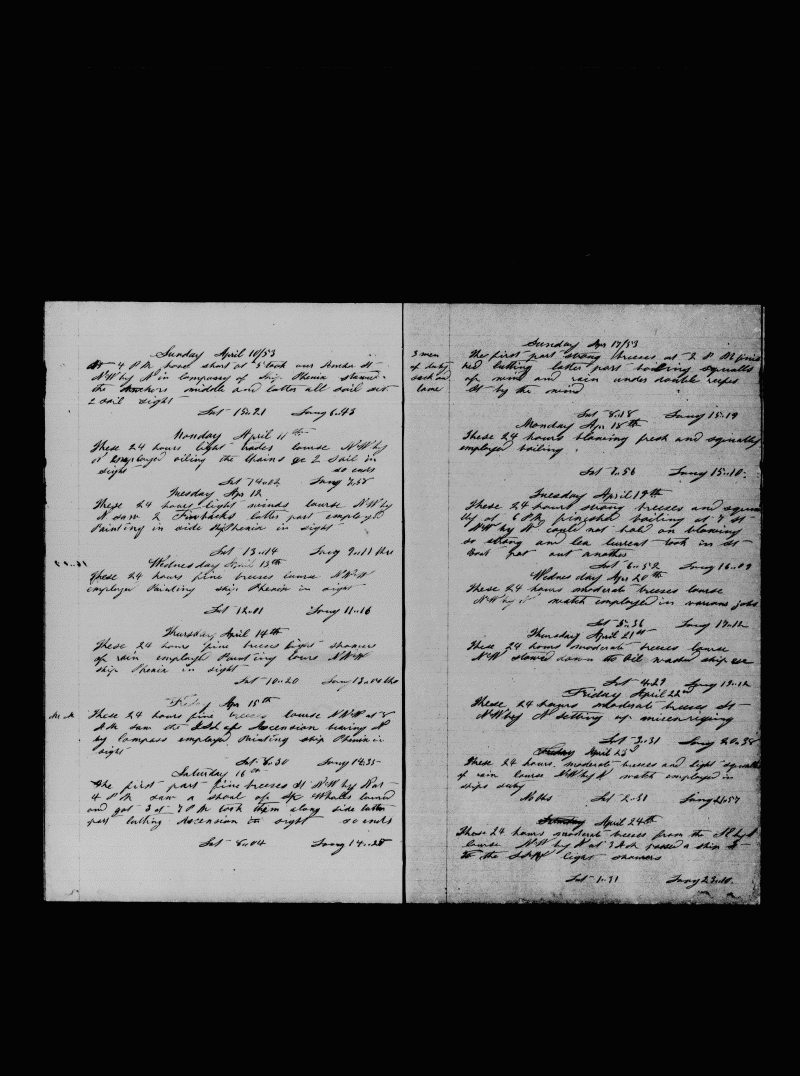 Sunday April 10/53
At 4 P.M. hove short at 5 took our Anchr St
NW by N in company of Ship Phenix stowed
the Anchors middle and latter all sail set
2 sail sight
Lat 15..21 Long 6..43
Monday April 11th
These 24 hours light trades course NW by
N Employed oiling the Chains &c 2 Sail in
sight so ends
Lat 14..02 Long 7.58
Tuesday Apr 12
These 24 hours light winds course NW by
N saw 2 Finbacks latter part employed
Painting in side Ship Phenix in sight
Lat 13..14 Long 9..11
Wednesday April 13th
These 24 hours fine breeses course NNW
employed Painting ship Phenix in sight
Lat 12..01 Long 11..16
Thursday April 14th
These 24 hours fine breeses light showers
of rain employed Painting cours NNW
ship Phenix in sight
Lat 10..20 Long 13..04
Friday Apr 15th
These 24 hours fine breeses course NNW at 8
A.M. saw the Isld of Ascension bearing
by compass employed Painting ship Phenix in
sight
Lat 8..30 Long 14.35
Saturday 16th
The first part fine breeses St NW by N at
4 P.M. saw a Shoal of Sp Whales lowrd
and got 3 at 7 P.M. took them along side latter
part cutting Ascension in sight so ends
Lat 8..04 Long 14..28
3 men
off duty
sick and
lame
Sunday Apr 17/53
The first part strong breeses at 2 P.M. finis
hed cutting latter part boiling squalls
of wind and rain under double reefs
St by the wind
Lat 8.18 Long 15..19
Monday Apr 18th
These 24 hours blowing fresh and squally
employed boiling
Lat 7..56 Long 15..10
Tuesday April 19th
These 24 hours strong breeses and squa
lly at 6 P.M. finished boiling at 7 St
NW by N could not hold on blowing
so strong and lea current took in St
Boat put out another
Lat 6..52 Long 16..09
Wednesday Apr 20th
These 24 hours moderate breeses course
NW by N watch employed in various jobs
Lat 5..36 Long 17..12
Thursday April 21st
These 24 hours moderate breeses course
NW stowed down the Oil washed ship &c
Lat 4.29 Long 19..12
Friday April 22nd
These 24 hours moderate breeses St
NW by N setting up missen riging
Lat 3..31 Long 20..38
April 23d
These 24 hours moderate breeses and light squalls
of rain course NW by N watch employed in
ships duty
No Obs Lat 2..31 Long 21..57
Sunday April 24th
These 24 hours moderate breeses from the
course NW by N at 3 A.M. passed a ship
to the light showers
Lat 1..31 Long 23..10